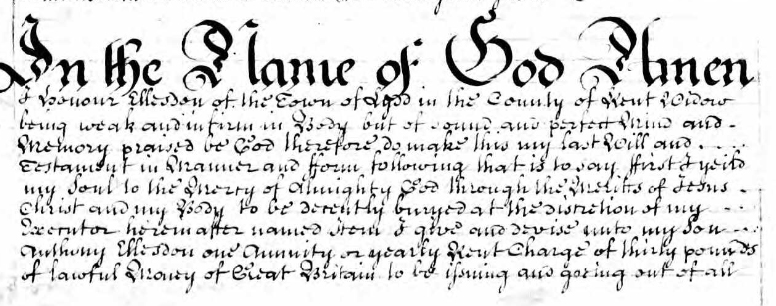 In the Name of God Amen
I Honour Ellesdon of the Town of Lydd in the County of Kent Widow
being weak and infirm in Body but of sound and perfect Mind and
Memory praised be God therefore do make this my last Will and
Testament in Manner and fform following that is to say ffirst I yeild
my Soul to the Mercy of Almighty God through the Merits of Jesus
Christ and my Body to be decently buryed at the discretion of my
Executor hereinafter named Item I give and devise unto my Son
Anthony Ellesdon one Annuity or yearly Rent Charge of thirty pounds
of lawful Money of Great Britain to be issuing and goeing out of all